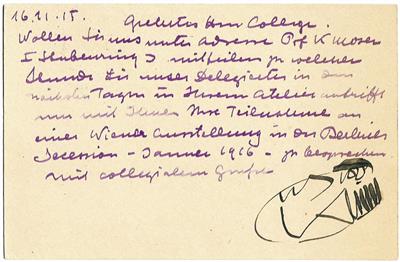 16.11.15. Geehrter Herr College.
Wollen Sie uns unter Adresse Prof K Moser
I Stubenring 3 mitteilen zu welcher
Stunde Sie unser Delegierter in den
nächsten Tagen in Ihrem Atelier antrifft
um mit Ihnen Ihre Teilnahme an
einer Wiener Ausstellung in der Berliner
Secession - Januar 1916 - zu besprechen.
Mit collegialem Gruße